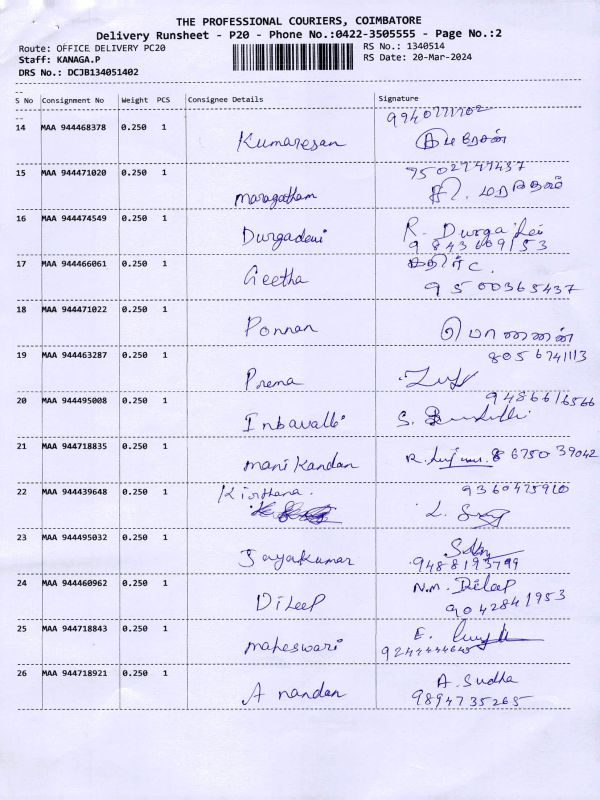 THE PROFESSIONAL COURIERS, COIMBATORE
Delivery Runsheet - P20 - Phone No.:0422-3505555 - Page No.:2
Route: OFFICE DELIVERY PC20
RS No.: 1340514
Staff: KANAGA.P
RS Date: 20-Mar-2024
DRS No.: DCJB134051402
S No Consignment No Weight PCS Consignee Details Signature
14 MAA 944468378 0.250 1 Kumaresan
15 MAA 944471020 0.250 1 maragatham 7502747437
16 MAA 944474549 0.250 1 Durgadevi R. Durgadevi
9843609153
17 MAA 944466061 0.250 1 Geetha
9500365437
18 MAA 944471022 0.250 1 Ponnan பொன்னன்
19 MAA 944463287 0.250 1 Prema 8056741113
20 MAA 944495008 0.250 1 Inbavalli 9486616566
21 MAA 944718835 0.250 1 manikandan 8675039042
22 MAA 944439648 0.250 1 Kirthana. 9360475910
23 MAA 944495032 0.250 1 Jayakumar
9488193799
24 MAA 944460962 0.250 1 Dileep N.M. Dileep
9042841953
25 MAA 944718843 0.250 1 maheswari
26 MAA 944718921 0.250 1 Anandan A. Sudha
9894735265